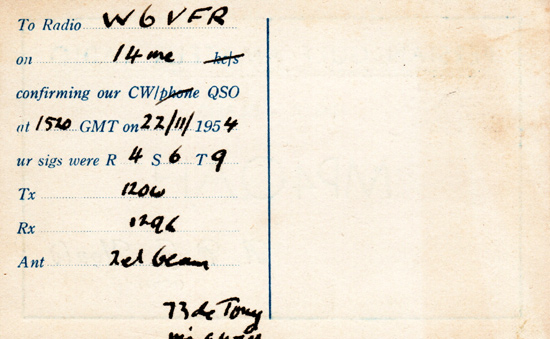 To Radio W6VFR
on 14 mc kc/s
confirming our CW/phone QSO
at 1520 GMT on 22/11/1954
ur sigs were R 4 S 6 T 9
Tx 120w
Rx
Ant 2el beam
73 de Tony